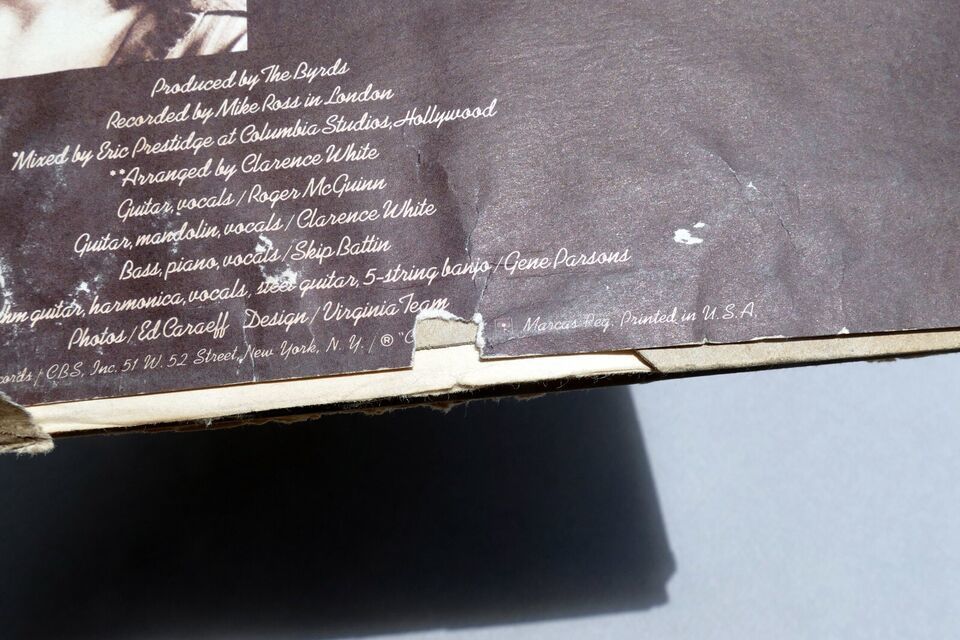 Produced by The Byrds
Recorded by Mike Ross in London
*Mixed by Eric Prestidge at Columbia Studios, Hollywood
**Arranged by Clarence White
Guitar, vocals / Roger McGuinn
Guitar, mandolin, vocals / Clarence White
Bass, piano, vocals / Skip Battin
guitar, harmonica, vocals, steel guitar, 5-string banjo / Gene Parsons
Photos / Ed Caraeff Design / Virginia Team
/ CBS, Inc. 51 W. 52 Street, New York, N.Y. / ® "C Marcas Reg. Printed in U.S.A.